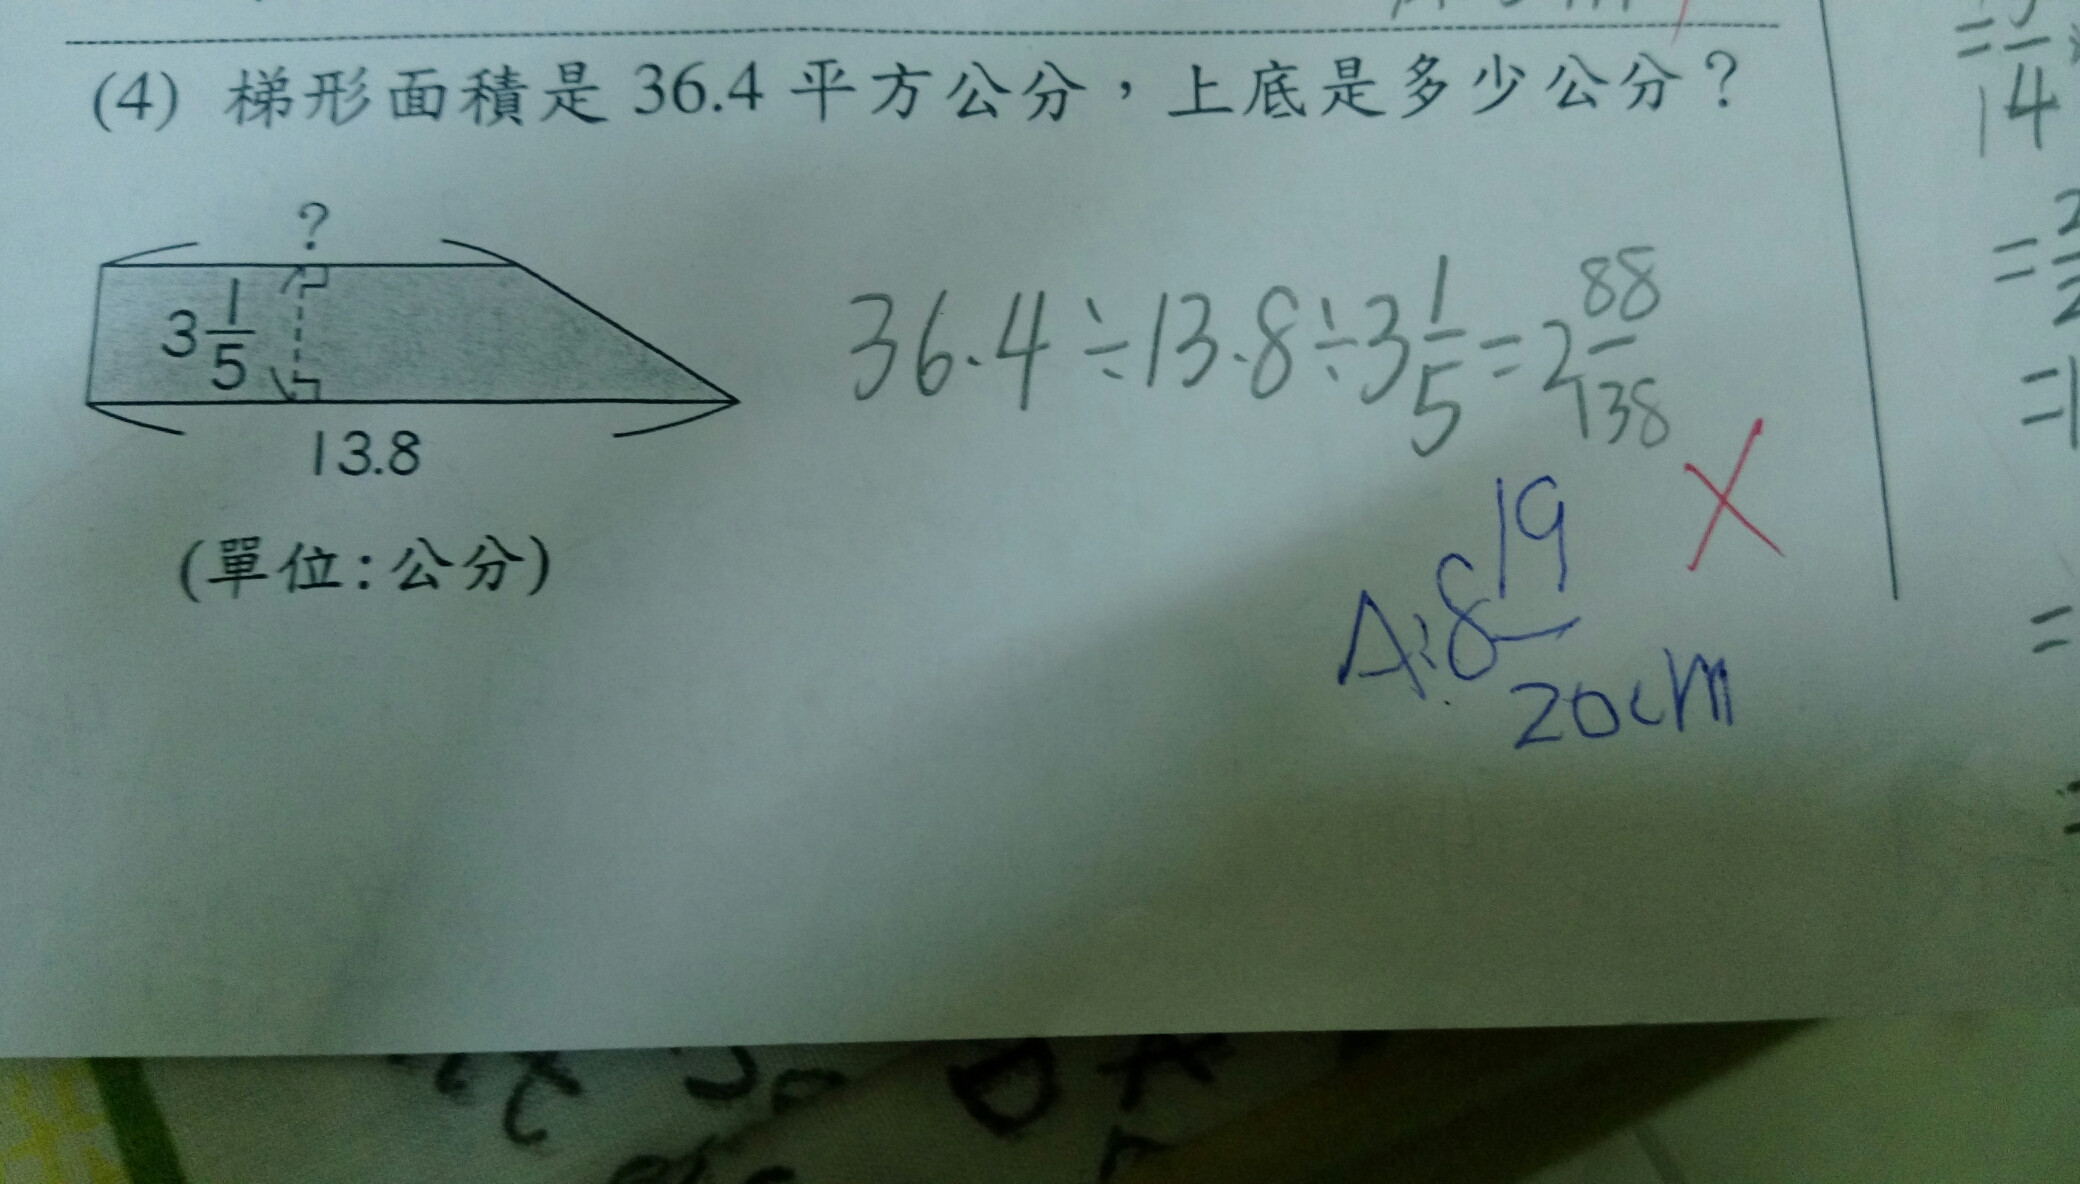 (4) 梯形面積是 36.4 平方公分，上底是多少公分？
?
3 1/5
13.8
(單位:公分)
36.4÷13.8÷3 1/5=2 88/138
A:8 19/20cm
=
14
=
=1
=